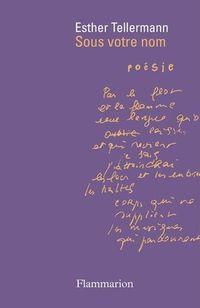 Esther Tellermann
Sous votre nom
poésie
Par le flot
et la flamme
une langue qu'o
et qui revient
je sais
j'attendrai
les
les haltes
corps qui ne
supplient
les musiques
qui parcourent
Flammarion